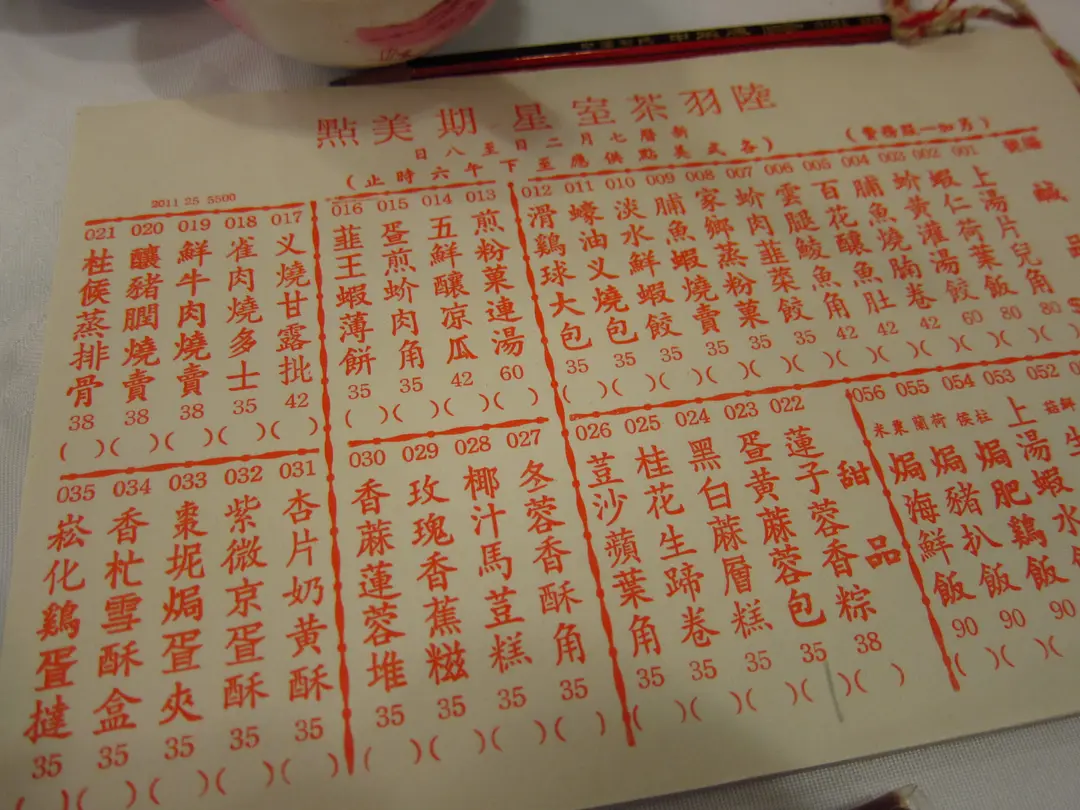 陸羽茶室星期美點
新曆七月二日至八日
(各式美點供應至下午六時止)
(另加一服務費)
2011 25 5500
編號
鹹
品
001 上湯片兒角 80
002 蝦仁荷葉飯 80
003 蚧黃灌湯餃 60
004 脯魚燒腩卷 42
005 百花釀魚肚 42
006 雲腿鯪魚角 42
007 蚧肉韮菜餃 35
008 家鄉蒸粉菓 35
009 脯魚蝦燒賣 35
010 淡水鮮蝦餃 35
011 蠔油义燒包 35
012 滑鷄球大包 35
013 煎粉菓連湯 60
014 五鮮釀凉瓜 42
015 蛋煎蚧肉角 35
016 韮王蝦薄餅 35
017 义燒甘露批 42
018 雀肉燒多士 35
019 鮮牛肉燒賣 38
020 釀豬膶燒賣 38
021 柱候蒸排骨 38
052
053 上湯蝦
054 柱候焗肥鷄飯 90
055 荷蘭焗豬扒飯 90
056 米東焗海鮮飯 90
甜品
022 蓮子蓉香粽 38
023 蛋黃蔴蓉包 35
024 黑白蔴層糕 35
025 桂花生蹄卷 35
026 荳沙蘋葉角 35
027 冬蓉香酥角 35
028 椰汁馬荳糕 35
029 玫瑰香蕉糍 35
030 香蔴蓮蓉堆 35
031 杏片奶黃酥 35
032 紫微京蛋酥 35
033 棗坭焗蛋夾 35
034 香杧雪酥盒 35
035 崧化鷄蛋撻 35